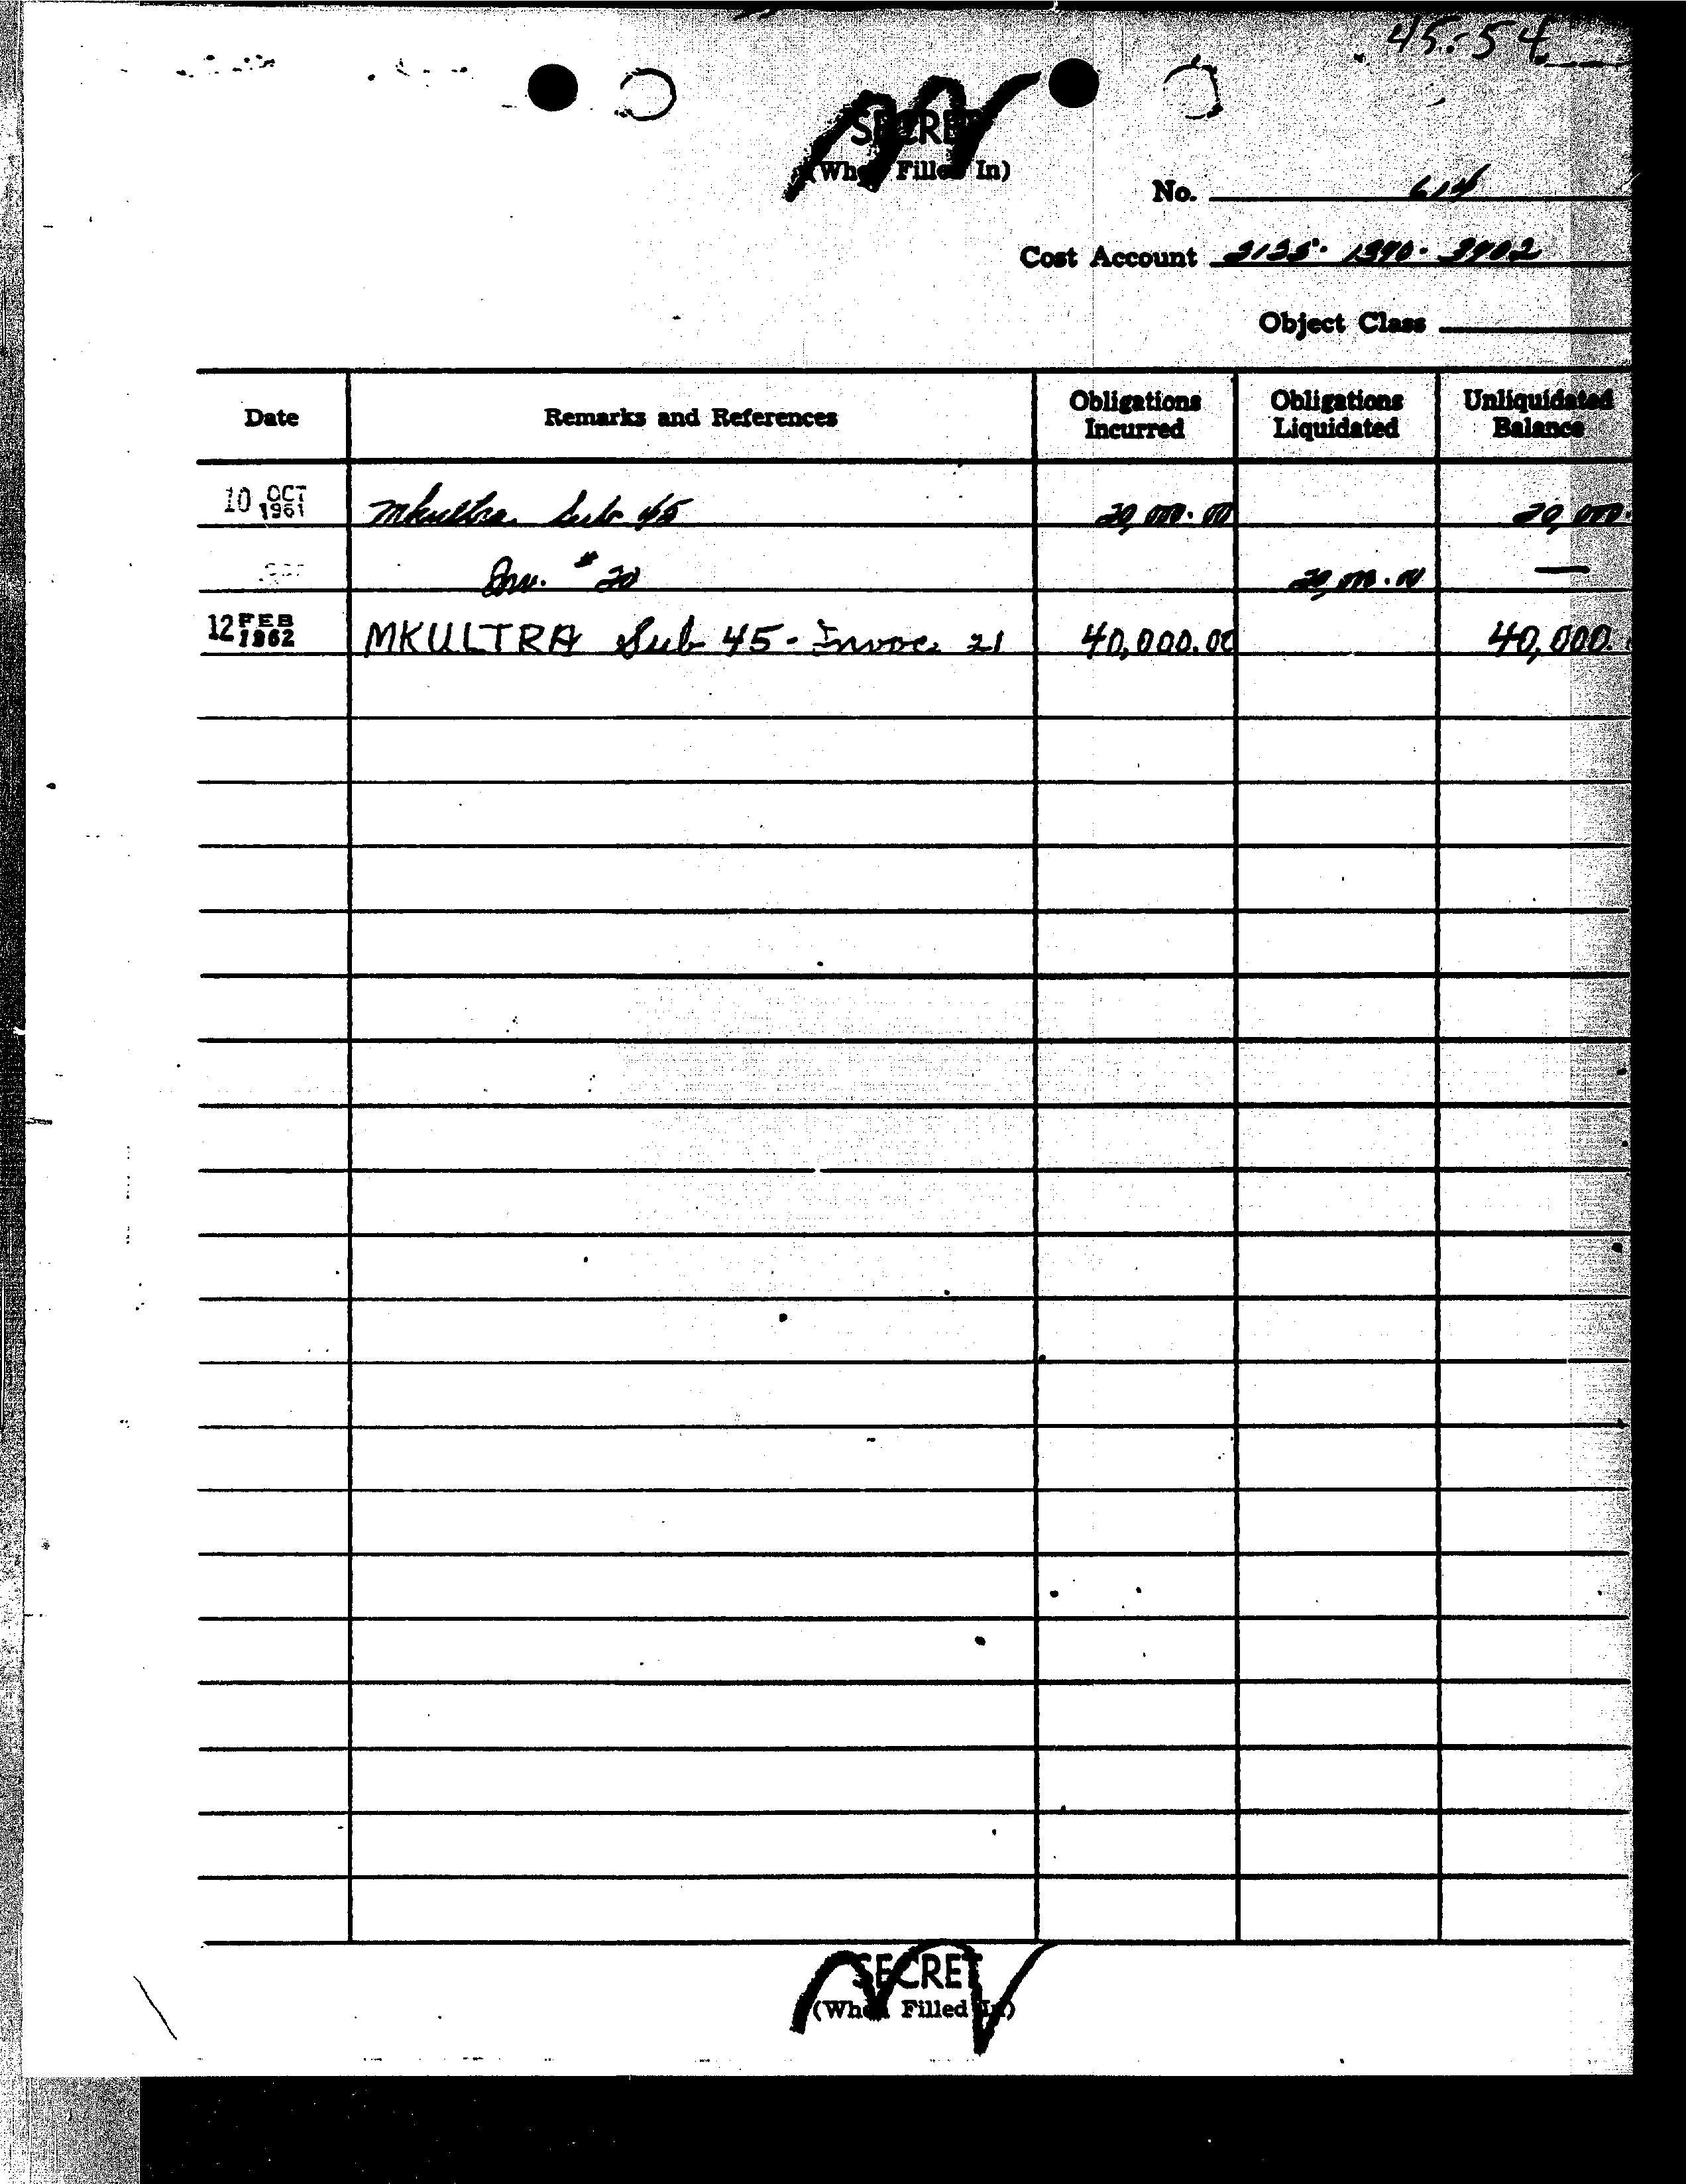 45-54
SECRET
(When Filled In)
No. 614
Cost Account
Object Class
Date Remarks and References Obligations Incurred Obligations Liquidated Unliquidated Balance
10 OCT 1961 Mkultra Sub 45 20,000.00 20,000.
Inv. # 20 20,000.00 —
12 FEB 1962 MKULTRA Sub 45 - Invoc. 21 40,000.00 40,000.
SECRET
(When Filled In)